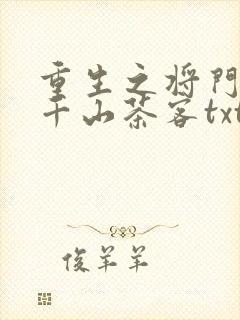 重生之将门
千山茶客txt
俊羊羊